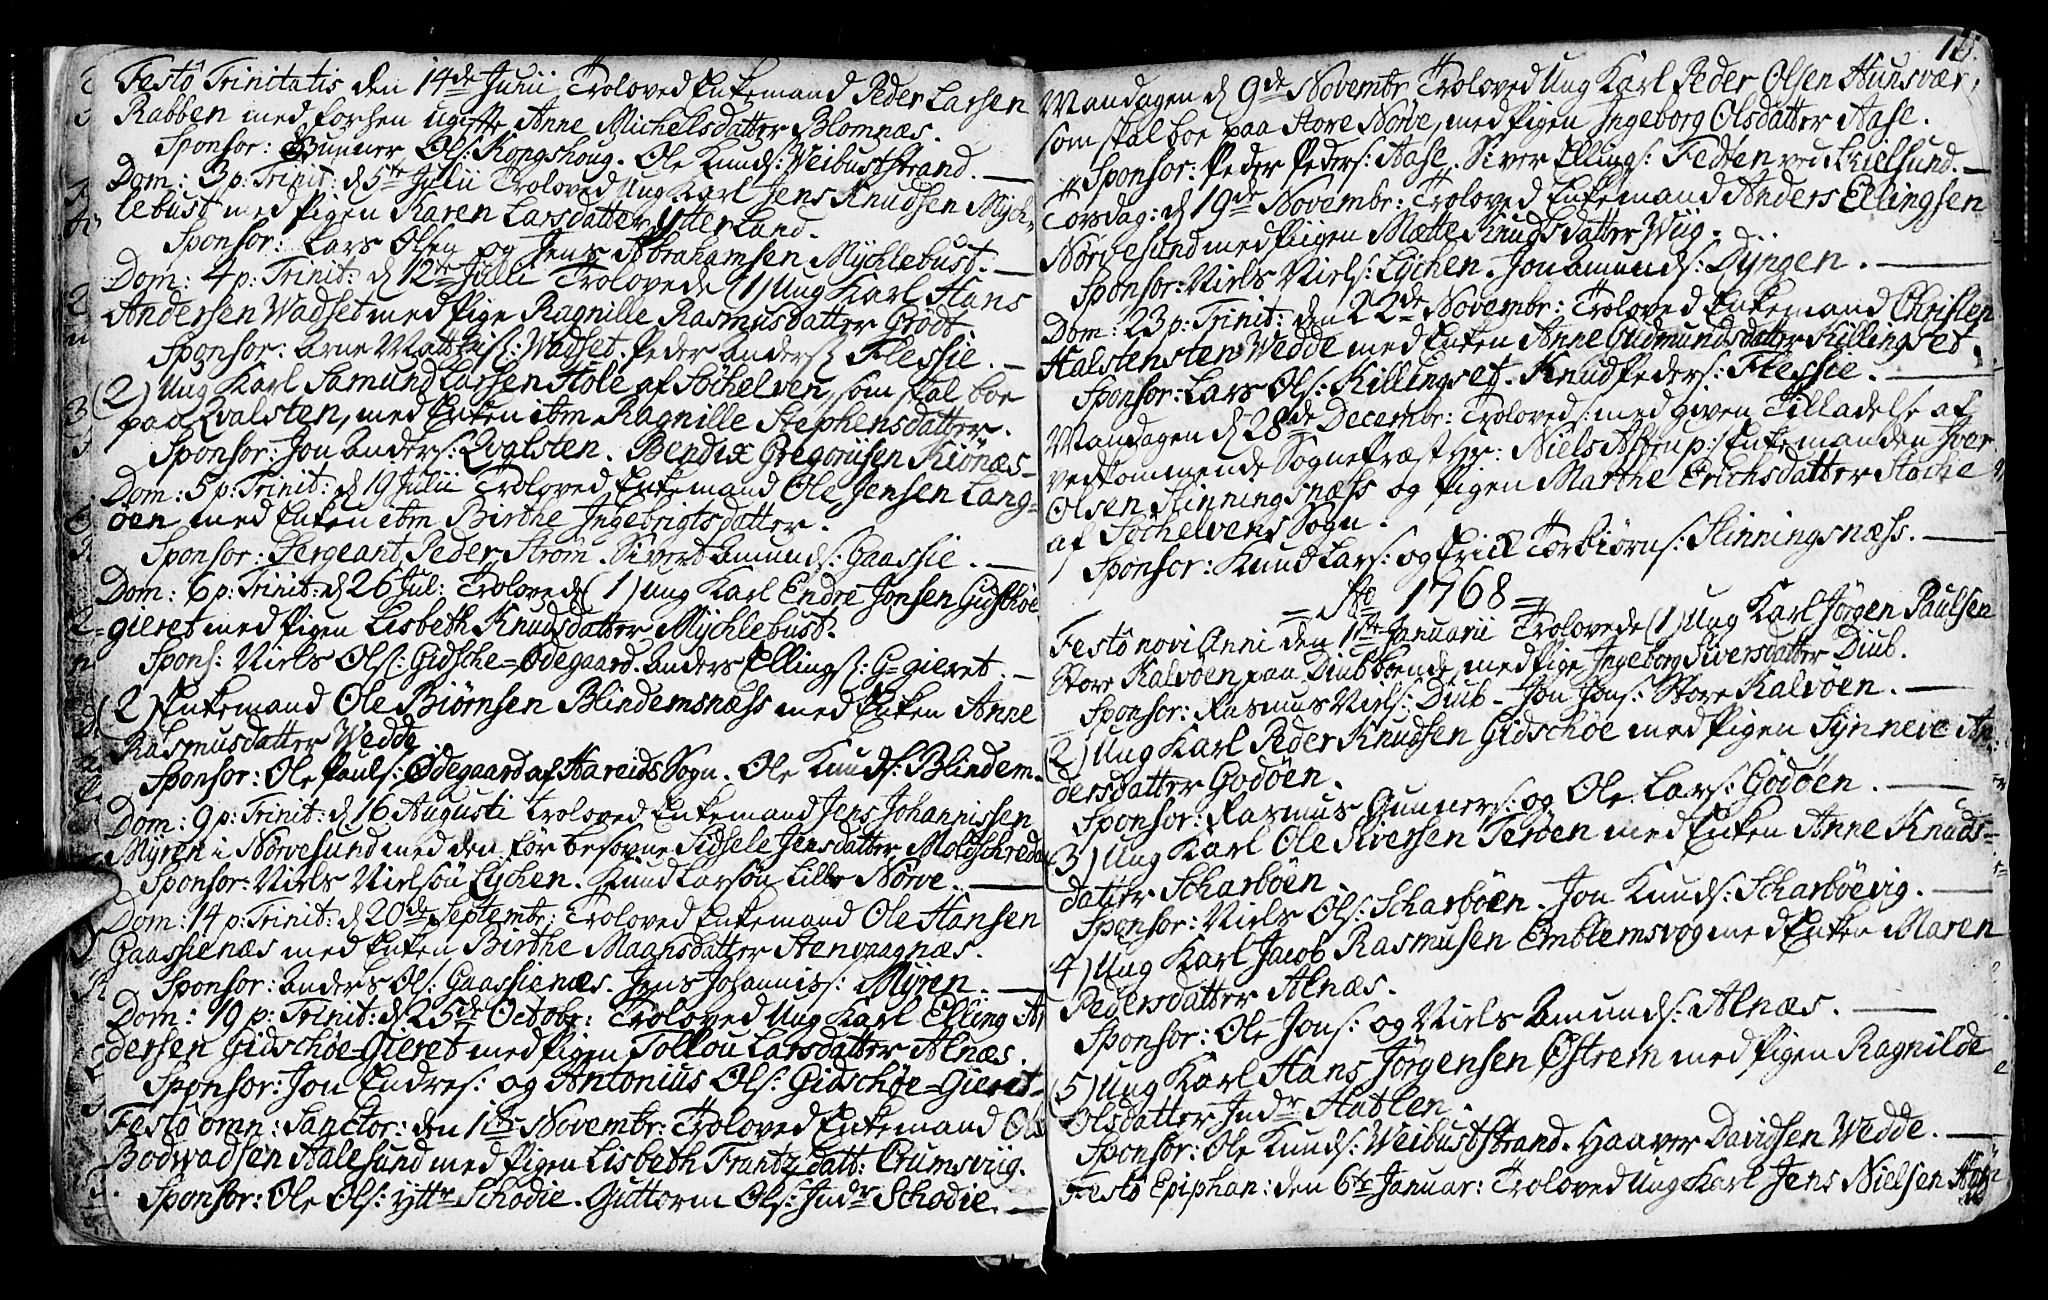 Festô Trinitatis den 14de Junii Troloved Enkemand Peder Larsen
Rabben med forhen ugifte Anne Michelsdatter Blomnæs.
Sponsor: Gunner Ols: Kongshoug. Ole Knuds: Veibuststrand.
Dom: 3 p: Trinit: d 5te Julii Troloved Ung Karl Jens Knudsen Mych-
lebust med Pigen Karen Larsdatter Ytterland.
Sponsor: Lars Olsen og Jens Abrahamsen Mychlebust.
Dom: 4 p: Trinit: d 12te Julii Trolovede (1) Ung Karl Hans
Andersen Wadset med Pige Ragnille Rasmusdatter Grödt.
Sponsor: Arne Matthis: Wadset. Peder Anders: Flessie.
(2) Ung Karl Samund Larsen Hole af Söchelven, som skal boe
paa Qvalsten, med Enken ibm Ragnille Stephensdatter.
Sponsor: Jon Anders: Qvalsten. Bendix Gregoriisen Kiönæs
Dom: 5 p: Trinit: d 19 Julii Troloved Enkemand Ole Jensen Lang-
öen med Enken ibm Birthe Ingebrigtsdatter.
Sponsor: Sergeant Peder Ström. Sivert Amunds: Gaassie.
Dom: 6 p: Trinit: d 26 Jul: Trolovede (1) Ung Karl Endre Jonsen Gidschöe
gieret med Pigen Lisbeth Knudsdatter Mychlebust.
Spons: Niels Ols: Gidsche-Ödegaard. Anders Ellings: G-gieret.
(2) Enkemand Ole Biörnsen Blindemsnæss med Enken Anne
Rasmusdatter Wedde
Sponsor: Ole Pauls: Ödegaard af Hareids Sogn. Ole Knuds: Blindem.
Dom: 9 p: Trinit: d 16 Augusti troloved Enkemand Jens Johannissen
Myren i Nörvesund med den för besovne Sidsele Jensdatter Moldschreda
Sponsor: Niels Nielsön Lychen. Knud Larsön Lille Nörve.
Dom: 14 p: Trinit: d 20de Septembr: Troloved Enkemand Ole Hansen
Gaassienæs med Enken Birthe Maansdatter Stenvagnæs.
Sponsor: Anders Ols: Gaassienæs. Jens Johannis: Myren.
Dom: 19 p: Trinit: d 25de Octobr: Troloved Ung Karl Elling An
dersen Gidschöe-Gieret med Pigen Tollou Larsdatter Alnæs.
Sponsor: Jon Endres: og Antonius Ols: Gidschöe-Gieret
Festô omn: Sanctor: den 1ste Novembr: Troloved Enkemand Ole
Bodwadsen Aalesund med Pigen Lisbeth Frantzdatt: Crumsviig.
Sponsor: Ole Ols: yttr Schodie. Guttorm Ols: Indr Schodie.
Mandagen d 9de Novembr Troloved Ung Karl Peder Olsen Hunsvær
som skal boe paa Store Nörve, med Pigen Ingeborg Olsdatter Aase.
Sponsor: Peder Peders: Aase. Siver Ellings: Fedten ved Lielsund.
Torsdag: d 19de Novembr: Troloved Enkemand Anders Ellingsen
Nörvesund med Piigen Mætte Knudsdatter Wiig.
Sponsor: Niels Niels: Lychen. Jon Amunds: Dyngen.
Dom: 23 p: Trinit: den 22de Novembr: Troloved Enkemand Christen
Halstensten Wedde med Enken Anne Gudmundsdatter Killingset.
Sponsor: Lars Ols: Killingset. Knud Peders: Flessie.
Mandagen d 28de Decembr: Troloved: med given Tilladelse af
vedkommende Sognepræst Hr: Niels Astrup: Enkemanden Iver
Olsen Slinningsnæss og Pigen Marthe Erichsdatter Hoche
af Söchelvens Sogn.
Sponsor: Knud Lars: og Erich Torbiörns: Slinningsnæss.
Ao 1768
Festô novi Anni den 1ste Januarii Trolovede (1) Ung Karl Jörgen Paulsen
Store Kalvöen paa Diub boende med Pige Ingeborg Siversdatter Diub.
Sponsor: Rasmus Niels: Diub. Jon Jons: Store Kalvöen.
(2) Ung Karl Peder Knudsen Gidschöe med Pigen Synneve An
dersdatter Godöen.
Sponsor: Rasmus Gunners: og Ole Lars: Godöen.
(3) Ung Karl Ole Siversen Teröen med Enken Anne Knuds-
datter Scharböen.
Sponsor: Niels Ols: Scharböen. Jon Knuds: Scharböevig.
4) Ung Karl Jacob Rasmusen Emblemsvog med Enken Maren
Pedersdatter Alnæs.
Sponsor: Ole Jons: og Niels Amunds: Alnæs.
(5) Ung Karl Hans Jörgensen Östrem med Pigen Ragnilde
Olsdatter Indr Hatlen.
Sponsor: Ole Knuds: Weibuststrand. Haaver Davidsen Wedde.
Festô Epiphan: den 6te Januar: Troloved Ung Karl Jens Nielsen